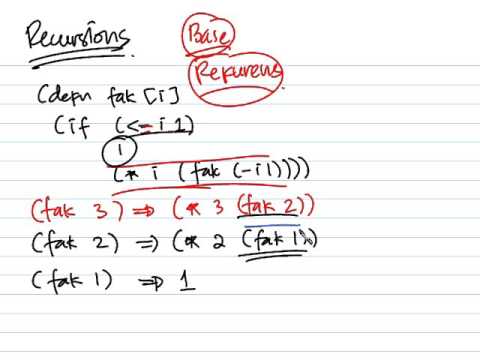 Recursions
Base
Rekurens
(defn fak [i]
(if (<= i 1)
1
(* i (fak (- i 1))))
(fak 3) => (* 3 (fak 2))
(fak 2) => (* 2 (fak 1))
(fak 1) => 1